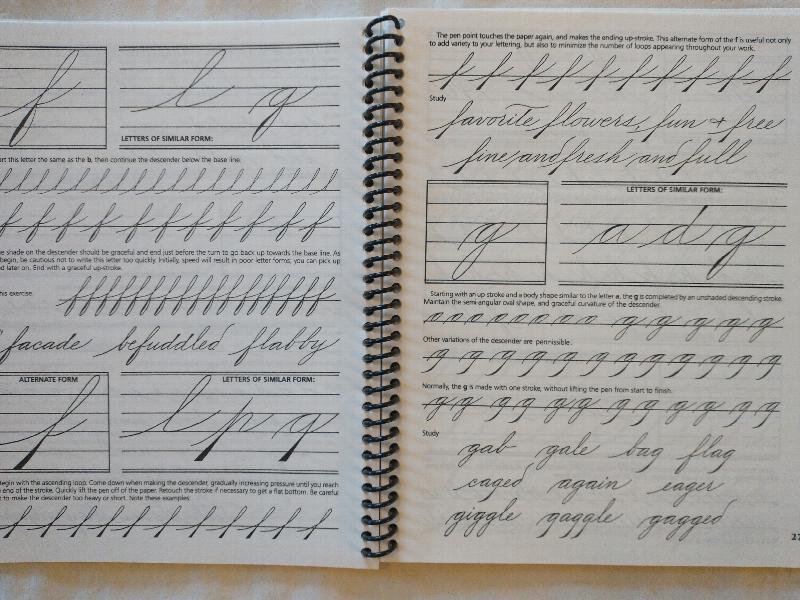 f l g
LETTERS OF SIMILAR FORM:
art this letter the same as the b, then continue the descender below the base line.
f f f f f f f f f f f
e shade on the descender should be graceful and end just before the turn to go back up towards the base line. As
begin, be cautious not to write this letter too quickly. Initially, speed will result in poor letter forms; you can pick up
d later on. End with a graceful up-stroke.
his exercise.
facade befuddled flabby
ALTERNATE FORM LETTERS OF SIMILAR FORM:
f l p q
egin with the ascending loop. Come down when making the descender, gradually increasing pressure until you reach
e end of the stroke. Quickly lift the pen off of the paper. Retouch the stroke if necessary to get a flat bottom. Be careful
t to make the descender too heavy or short. Note these examples:
f f f f f f f f f f f
The pen point touches the paper again, and makes the ending up-stroke. This alternate form of the f is useful not only
to add variety to your lettering, but also to minimize the number of loops appearing throughout your work.
f f f f f f f f f f
Study
favorite flowers, fun + free
fine and fresh and full
LETTERS OF SIMILAR FORM:
g a d q
Starting with an up stroke and a body shape similar to the letter a, the g is completed by an unshaded descending stroke.
Maintain the semi-angular oval shape, and graceful curvature of the descender.
g g g g g
Other variations of the descender are permissible.
g g g g g g g g g g g g
Normally, the g is made with one stroke, without lifting the pen from start to finish.
gg gg gg gg g g g g
Study
gab gale bag flag
caged again eager
giggle gaggle gagged
27